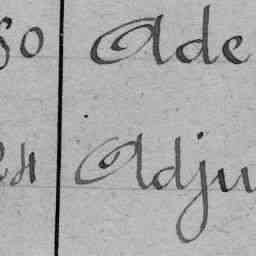 80 Ade
24 Adju